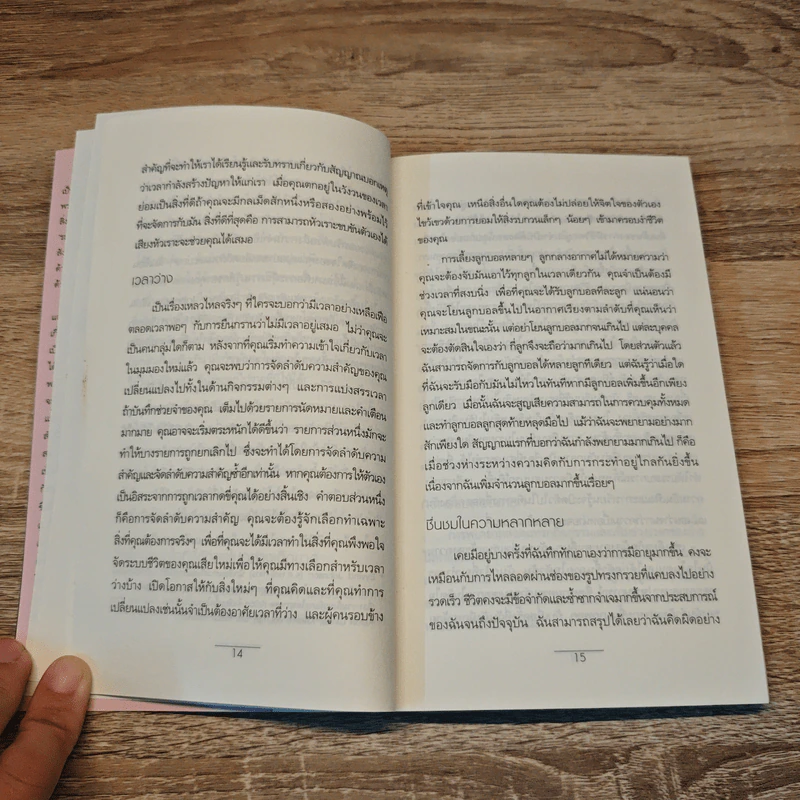 สำคัญที่จะทำให้เราได้เรียนรู้และรับทราบเกี่ยวกับสัญญาณบอกเหตุ
ว่าเวลากำลังสร้างปัญหาให้แก่เรา เมื่อคุณตกอยู่ในวังวนของเวลา
ย่อมเป็นสิ่งที่ดีถ้าคุณจะมีกลเม็ดสักหนึ่งหรือสองอย่างพร้อมไว้
ที่จะจัดการกับมัน สิ่งที่ดีที่สุดคือ การสามารถหัวเราะขบขันตัวเองได้
เสียงหัวเราะจะช่วยคุณได้เสมอ
เวลาว่าง
เป็นเรื่องเหลวไหลจริงๆ ที่ใครจะบอกว่ามีเวลาอย่างเหลือเฟือ
ตลอดเวลาพอๆ กับการยืนกรานว่าไม่มีเวลาอยู่เสมอ ไม่ว่าคุณจะ
เป็นคนกลุ่มใดก็ตาม หลังจากที่คุณเริ่มทำความเข้าใจเกี่ยวกับเวลา
ในมุมมองใหม่แล้ว คุณจะพบว่าการจัดลำดับความสำคัญของคุณ
เปลี่ยนแปลงไปทั้งในด้านกิจกรรมต่างๆ และการแบ่งสรรเวลา
ถ้าบันทึกช่วยจำของคุณ เต็มไปด้วยรายการนัดหมายและคำเตือน
มากมาย คุณอาจจะเริ่มตระหนักได้ดีขึ้นว่า รายการส่วนหนึ่งมักจะ
ทำให้บางรายการถูกยกเลิกไป ซึ่งจะทำได้โดยการจัดลำดับความ
สำคัญและจัดลำดับความสำคัญซ้ำอีกเท่านั้น หากคุณต้องการให้ตัวเอง
เป็นอิสระจากการถูกเวลากดขี่คุณได้อย่างสิ้นเชิง คำตอบส่วนหนึ่ง
ก็คือการจัดลำดับความสำคัญ คุณจะต้องรู้จักเลือกทำเฉพาะ
สิ่งที่คุณต้องการจริงๆ เพื่อที่คุณจะได้มีเวลาทำในสิ่งที่คุณพึงพอใจ
จัดระบบชีวิตของคุณเสียใหม่เพื่อให้คุณมีทางเลือกสำหรับเวลา
ว่างบ้าง เปิดโอกาสให้กับสิ่งใหม่ๆ ที่คุณคิดและที่คุณทำการ
เปลี่ยนแปลงเช่นนั้นจำเป็นต้องอาศัยเวลาที่ว่าง และผู้คนรอบข้าง
14
ที่เข้าใจคุณ เหนือสิ่งอื่นใดคุณต้องไม่ปล่อยให้จิตใจของตัวเอง
ไขว้เขวด้วยการยอมให้สิ่งรบกวนเล็กๆ น้อยๆ เข้ามาครอบงำชีวิต
ของคุณ
การเลี้ยงลูกบอลหลายๆ ลูกกลางอากาศไม่ได้หมายความว่า
คุณจะต้องจับมันเอาไว้ทุกลูกในเวลาเดียวกัน คุณจำเป็นต้องมี
ช่วงเวลาที่สงบนิ่ง เพื่อที่คุณจะได้รับลูกบอลทีละลูก แน่นอนว่า
คุณจะโยนลูกบอลขึ้นไปในอากาศเรียงตามลำดับที่คุณเห็นว่า
เหมาะสมในขณะนั้น แต่อย่าโยนลูกบอลมากจนเกินไป แต่ละบุคคล
จะต้องตัดสินใจเองว่า กี่ลูกจึงจะถือว่ามากเกินไป โดยส่วนตัวแล้ว
ฉันสามารถจัดการกับลูกบอลได้หลายลูกทีเดียว แต่ฉันรู้ว่าเมื่อใด
ที่ฉันจะรับมือกับมันไม่ไหวในทันทีหากมีลูกบอลเพิ่มขึ้นอีกเพียง
ลูกเดียว เมื่อนั้นฉันจะสูญเสียความสามารถในการควบคุมทั้งหมด
และทำลูกบอลลูกสุดท้ายหลุดมือไป แม้ว่าฉันจะพยายามอย่างมาก
สักเพียงใด สัญญาณแรกที่บอกว่าฉันกำลังพยายามมากเกินไป ก็คือ
เมื่อช่วงห่างระหว่างความคิดกับการกระทำอยู่ไกลกันยิ่งขึ้น
เนื่องจากฉันเพิ่มจำนวนลูกบอลมากขึ้นเรื่อยๆ
ชื่นชมในความหลากหลาย
เคยมีอยู่บางครั้งที่ฉันทึกทักเอาเองว่าการมีอายุมากขึ้น คงจะ
เหมือนกับการไหลลอดผ่านช่องของรูปทรงกรวยที่แคบลงไปอย่าง
รวดเร็ว ชีวิตคงจะมีข้อจำกัดและซ้ำซากจำเจมากขึ้นจากประสบการณ์
ของฉันจนถึงปัจจุบัน ฉันสามารถสรุปได้เลยว่าฉันคิดผิดอย่าง
15